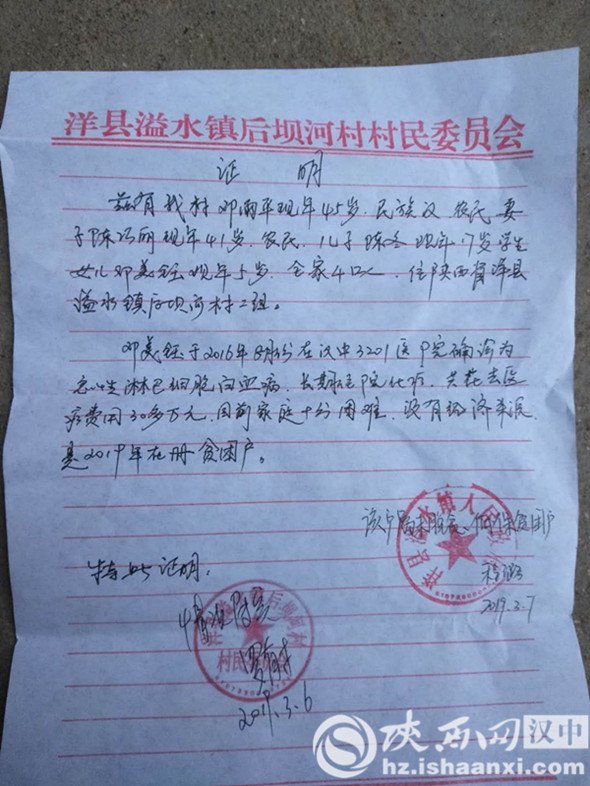 洋县溢水镇后坝河村村民委员会
证 明
兹有我村邓雨平现年45岁,民族汉,农民,妻
子陈巧丽现年41岁,农民,儿子陈冬现年17岁学生
女儿邓美钰现年5岁,全家4口人,住陕西省洋县
溢水镇后坝河村二组。
邓美钰于2016年8月份在汉中3201医院确诊为
急性淋巴细胞白血病,长期住院化疗,共花去医
疗费用30多万元,目前家庭十分困难,没有经济来源
是2019年在册贫困户。
该户属未脱贫、低保贫困户
特此证明。
情况属实
2019.3.7
2019.3.6
洋县溢水镇人民
后坝河村
村民
陕西网 汉中
hz.ishaanxi.com